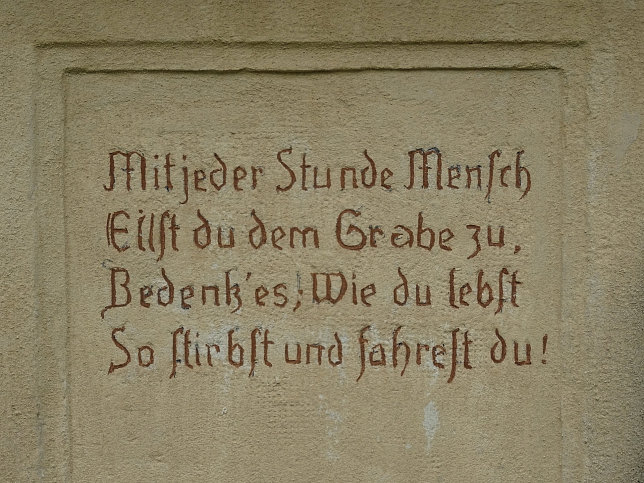 Mit jeder Stunde Menſch
Eilſt du dem Grabe zu,
Bedenk'es, Wie du lebſt
So ſtirbſt und fahreſt du!